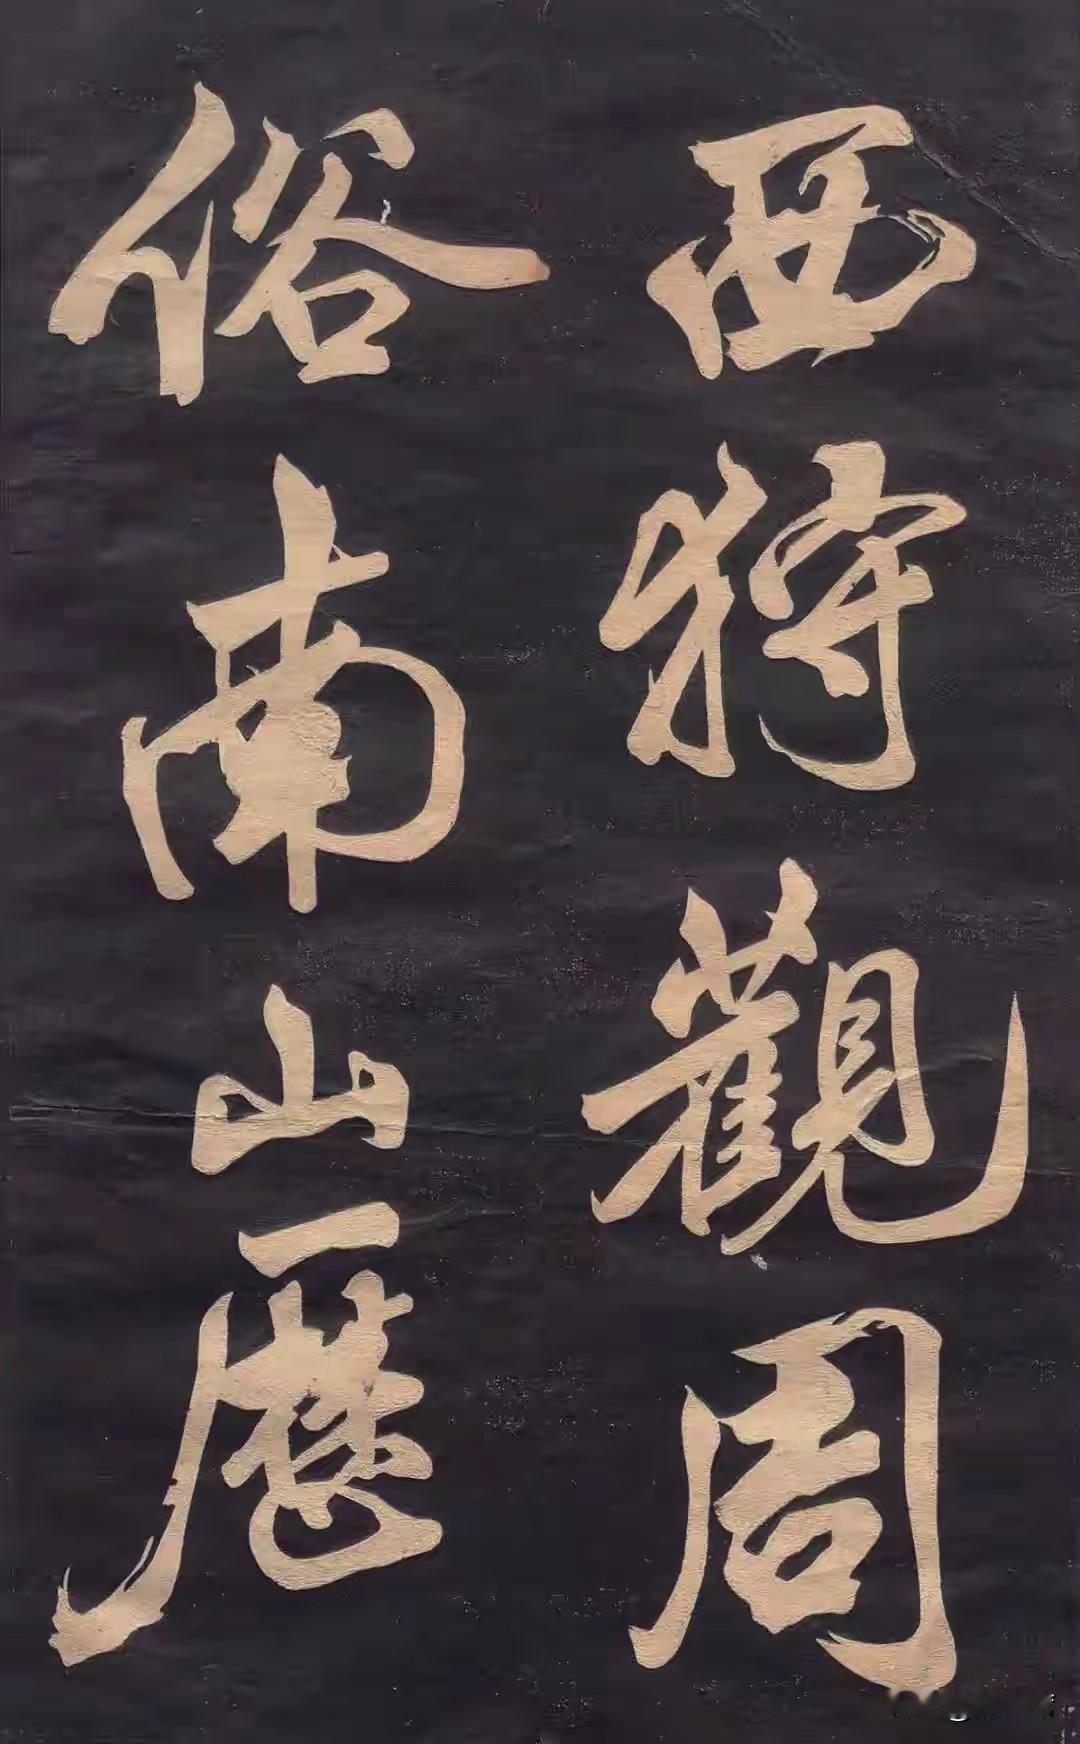 西狩觀周
俗南山歷